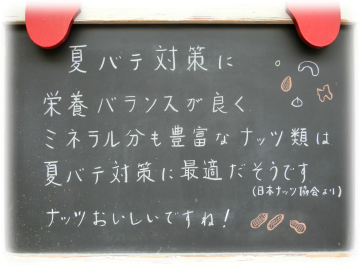 夏バテ対策に
栄養バランスが良く
ミネラル分も豊富なナッツ類は
夏バテ対策に最適だそうです
(日本ナッツ協会より)
ナッツおいしいですね!